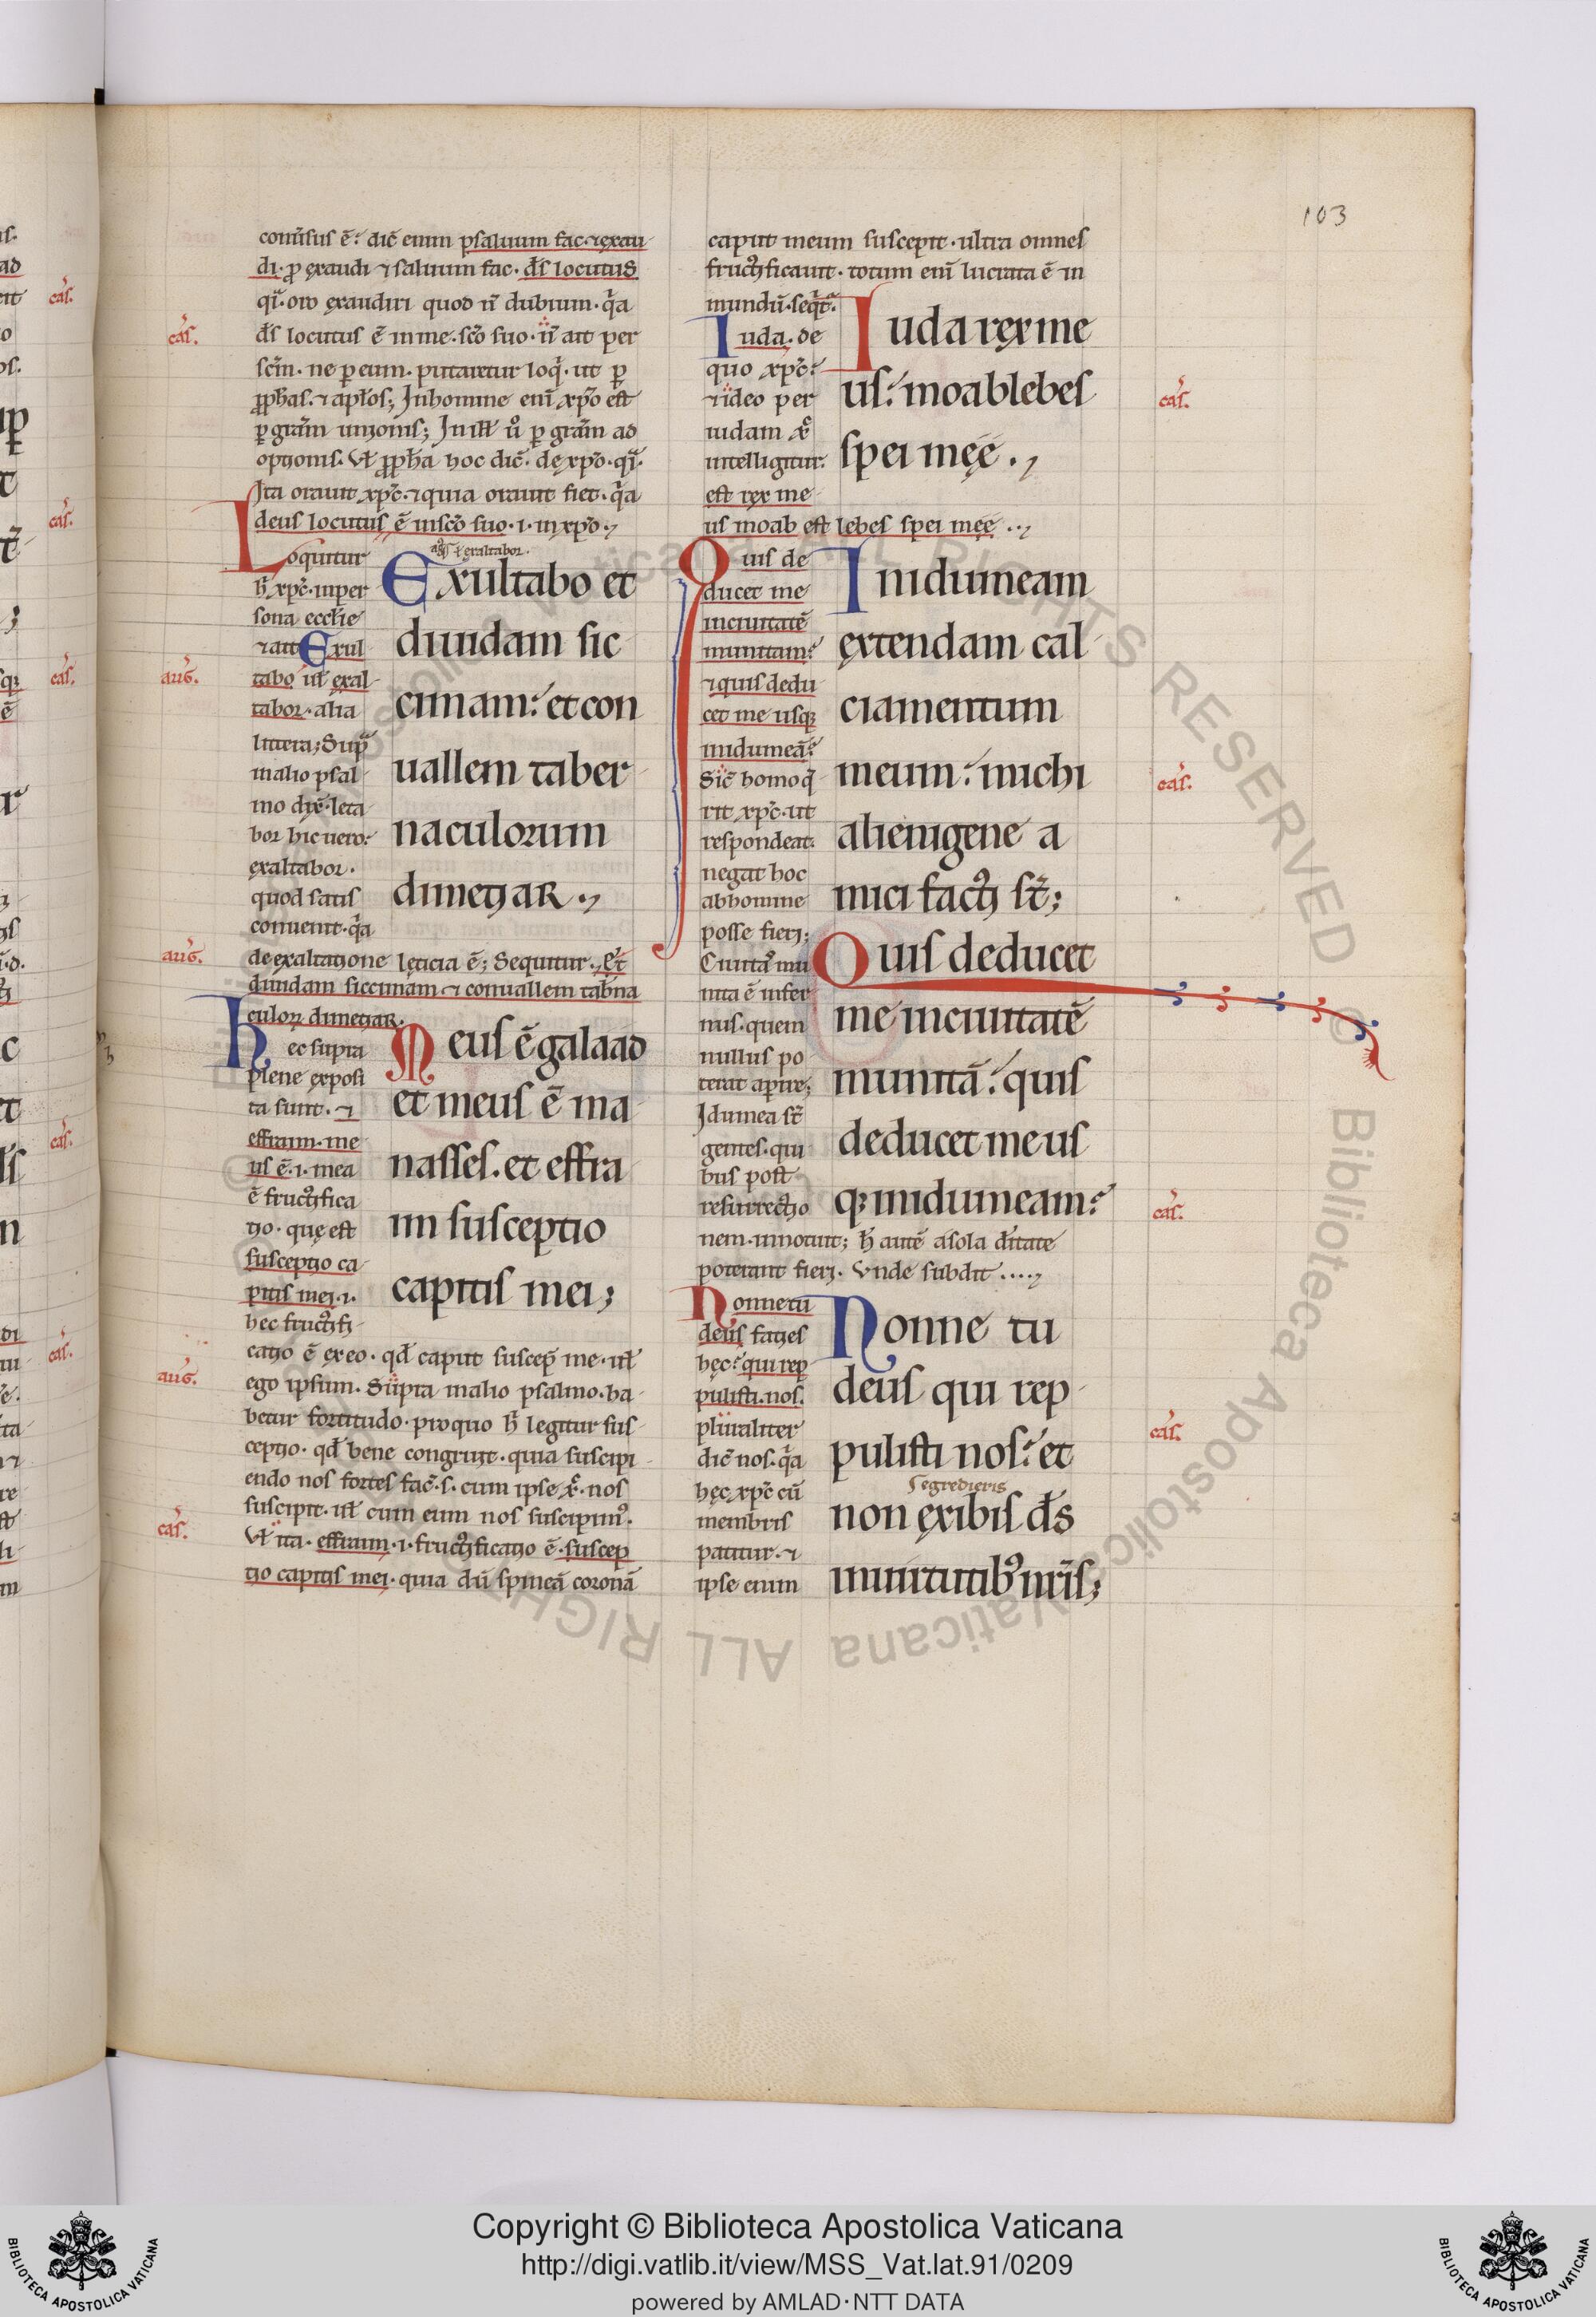 103
conuersus ē. dic̄ enim psaluum fac. ⁊ exau
di. ꝓ exaudi ⁊ saluum fac. ds̄ locutus
qͥ. oro exaudiri quod n̄ dubium. qͣa
ds̄ locutus ē in me. sc̄o suo. n̄ ait per
sc̄m. ne ꝑ eum. putaretur loqͥ. ut ꝑ
ꝓph̄as. ⁊ apl̄os; In homine enī xp̄o est
ꝑ grām unionis; In ill̄ ů ꝑ grām ad
optionis. Vl̄ ꝓph̄a hoc dic̄. de xp̄o. qͥ.
Ita orauit xp̄c. ⁊ quia orauit fiet. qͣa
deus locutus ē in sc̄o suo. i. in xp̄o.
Loquitur
h̄ xp̄c. in per
sona eccl̄ie
⁊ ait Exul
tabo ul̄ exal
tabor. alia
littera; Supͣ
in alio psal
mo dix̄. leta
bor hic uero.
exaltabor.
quod satis
conuenit. qͣa
de exaltatione leticia ē; Sequitur. Et
diuidam siccimam. ⁊ conuallem tab̄na
culoꝝ dimetiar.
ł exaltabor.
Exultabo et
diuidam sic
cimam. et con
uallem taber
naculorum
dimetiar.
Hec supra
plene exposi
ta sunt. ⁊
effraim. me
us ē. i. mea
ē fructifica
tio. quę est
susceptio ca
pitis mei. i.
hec fructifi
Meus ē galaad
et meus ē ma
nasses. et effra
im susceptio
capitis mei;
catio ē ex eo. qd̄ caput suscep̄ me. ul̄
ego ipsum. Supra in alio psalmo. ha
betur fortitudo. pro quo h̄ legitur sus
ceptio. qd̄ bene congruit. quia suscipi
endo nos fortes fac̄. s. cum ipse x̄. nos
suscipit. ul̄ cum eum nos suscipimꝰ.
Vl̄ ita. effraim. i. fructificatio ē. suscep
tio capitis mei. quia dū spineā coronā
caput meum suscepit. ultra omnes
fructificauit. totum enī lucrata ē in
mundū. seqͥt̄.
Iuda. de
quo xp̄c.
⁊ ideo per
iudam x̄
intelligitur.
est rex me
us moab est lebes spei meę.
Iuda rex me
us. moab lebes
spei meę.
Quis de
ducet me
in ciuitatē
munitam.
⁊ quis dedu
cet me usqꝫ
in idumeā.
Sic̄ homo q̄
rit xp̄c. ut
respondeat.
negat hoc
ab homine
posse fieri;
Ciuitas mu
nita ē infer
nus. quem
nullus po
terat apire;
Idumea st̄
gentes. qui
bus post
resurrectio
nem. innotuit; h̄ autē a sola d̄itate
poterant fieri. Vnde subdit
In idumeam
extendam cal
ciamentum
meum. michi
alienigene a
mici facti st̄;
Quis deducet
me in ciuitatē
munitā. quis
deducet me us
qꝫ in idumeam.
Nonne tu
deus faties
hęc. qui rep
pulisti. nos.
pluraliter
dic̄ nos. qͣa
hęc xp̄c cū
membris
patitur. ⁊
ipse enim
Nonne tu
deus qui rep
pulisti nos. et
ł egredieris
non exibis ds̄
in uirtutibꝰ nr̄is;
cas.
aug.
aug.
aug.
cas.
cas.
cas.
cas.
cas.
Copyright © Biblioteca Apostolica Vaticana
http://digi.vatlib.it/view/MSS_Vat.lat.91/0209
powered by AMLAD·NTT DATA
BIBLIOTECA APOSTOLICA VATICANA
BIBLIOTECA APOSTOLICA VATICANA